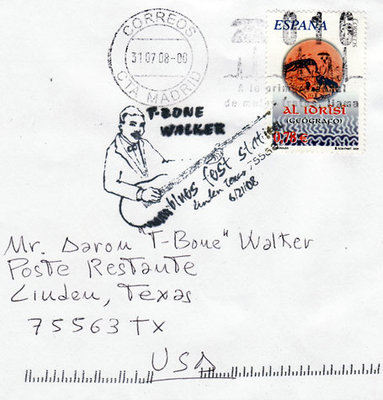 CORREOS
31 07 08-00
CTA MADRID
ESPAÑA
AL IDRISI
(GEÓGRAFO)
0,78 €
T-BONE
WALKER
blues fest station
Linden Texas 75563
6/21/08
Mr. Aaron "T-Bone" Walker
Poste Restante
Linden, Texas
75563 TX
USA